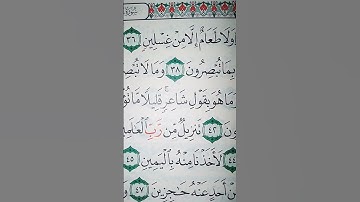 وَلَا طَعَامٌ إِلَّا مِنْ غِسْلِينٍ ٣٦
بِمَا تُبْصِرُونَ ٣٨ وَمَا لَا تُبْصِ
مَا هُوَ بِقَوْلِ شَاعِرٍ قَلِيلًا مَا تُؤْ
ونَ ٤٢ تَنزِيلٌ مِّن رَّبِّ الْعَالَمِ
٤٤ لَأَخَذْنَا مِنْهُ بِالْيَمِينِ ٤٥
مِنْ أَحَدٍ عَنْهُ حَاجِزِينَ ٤٧ و